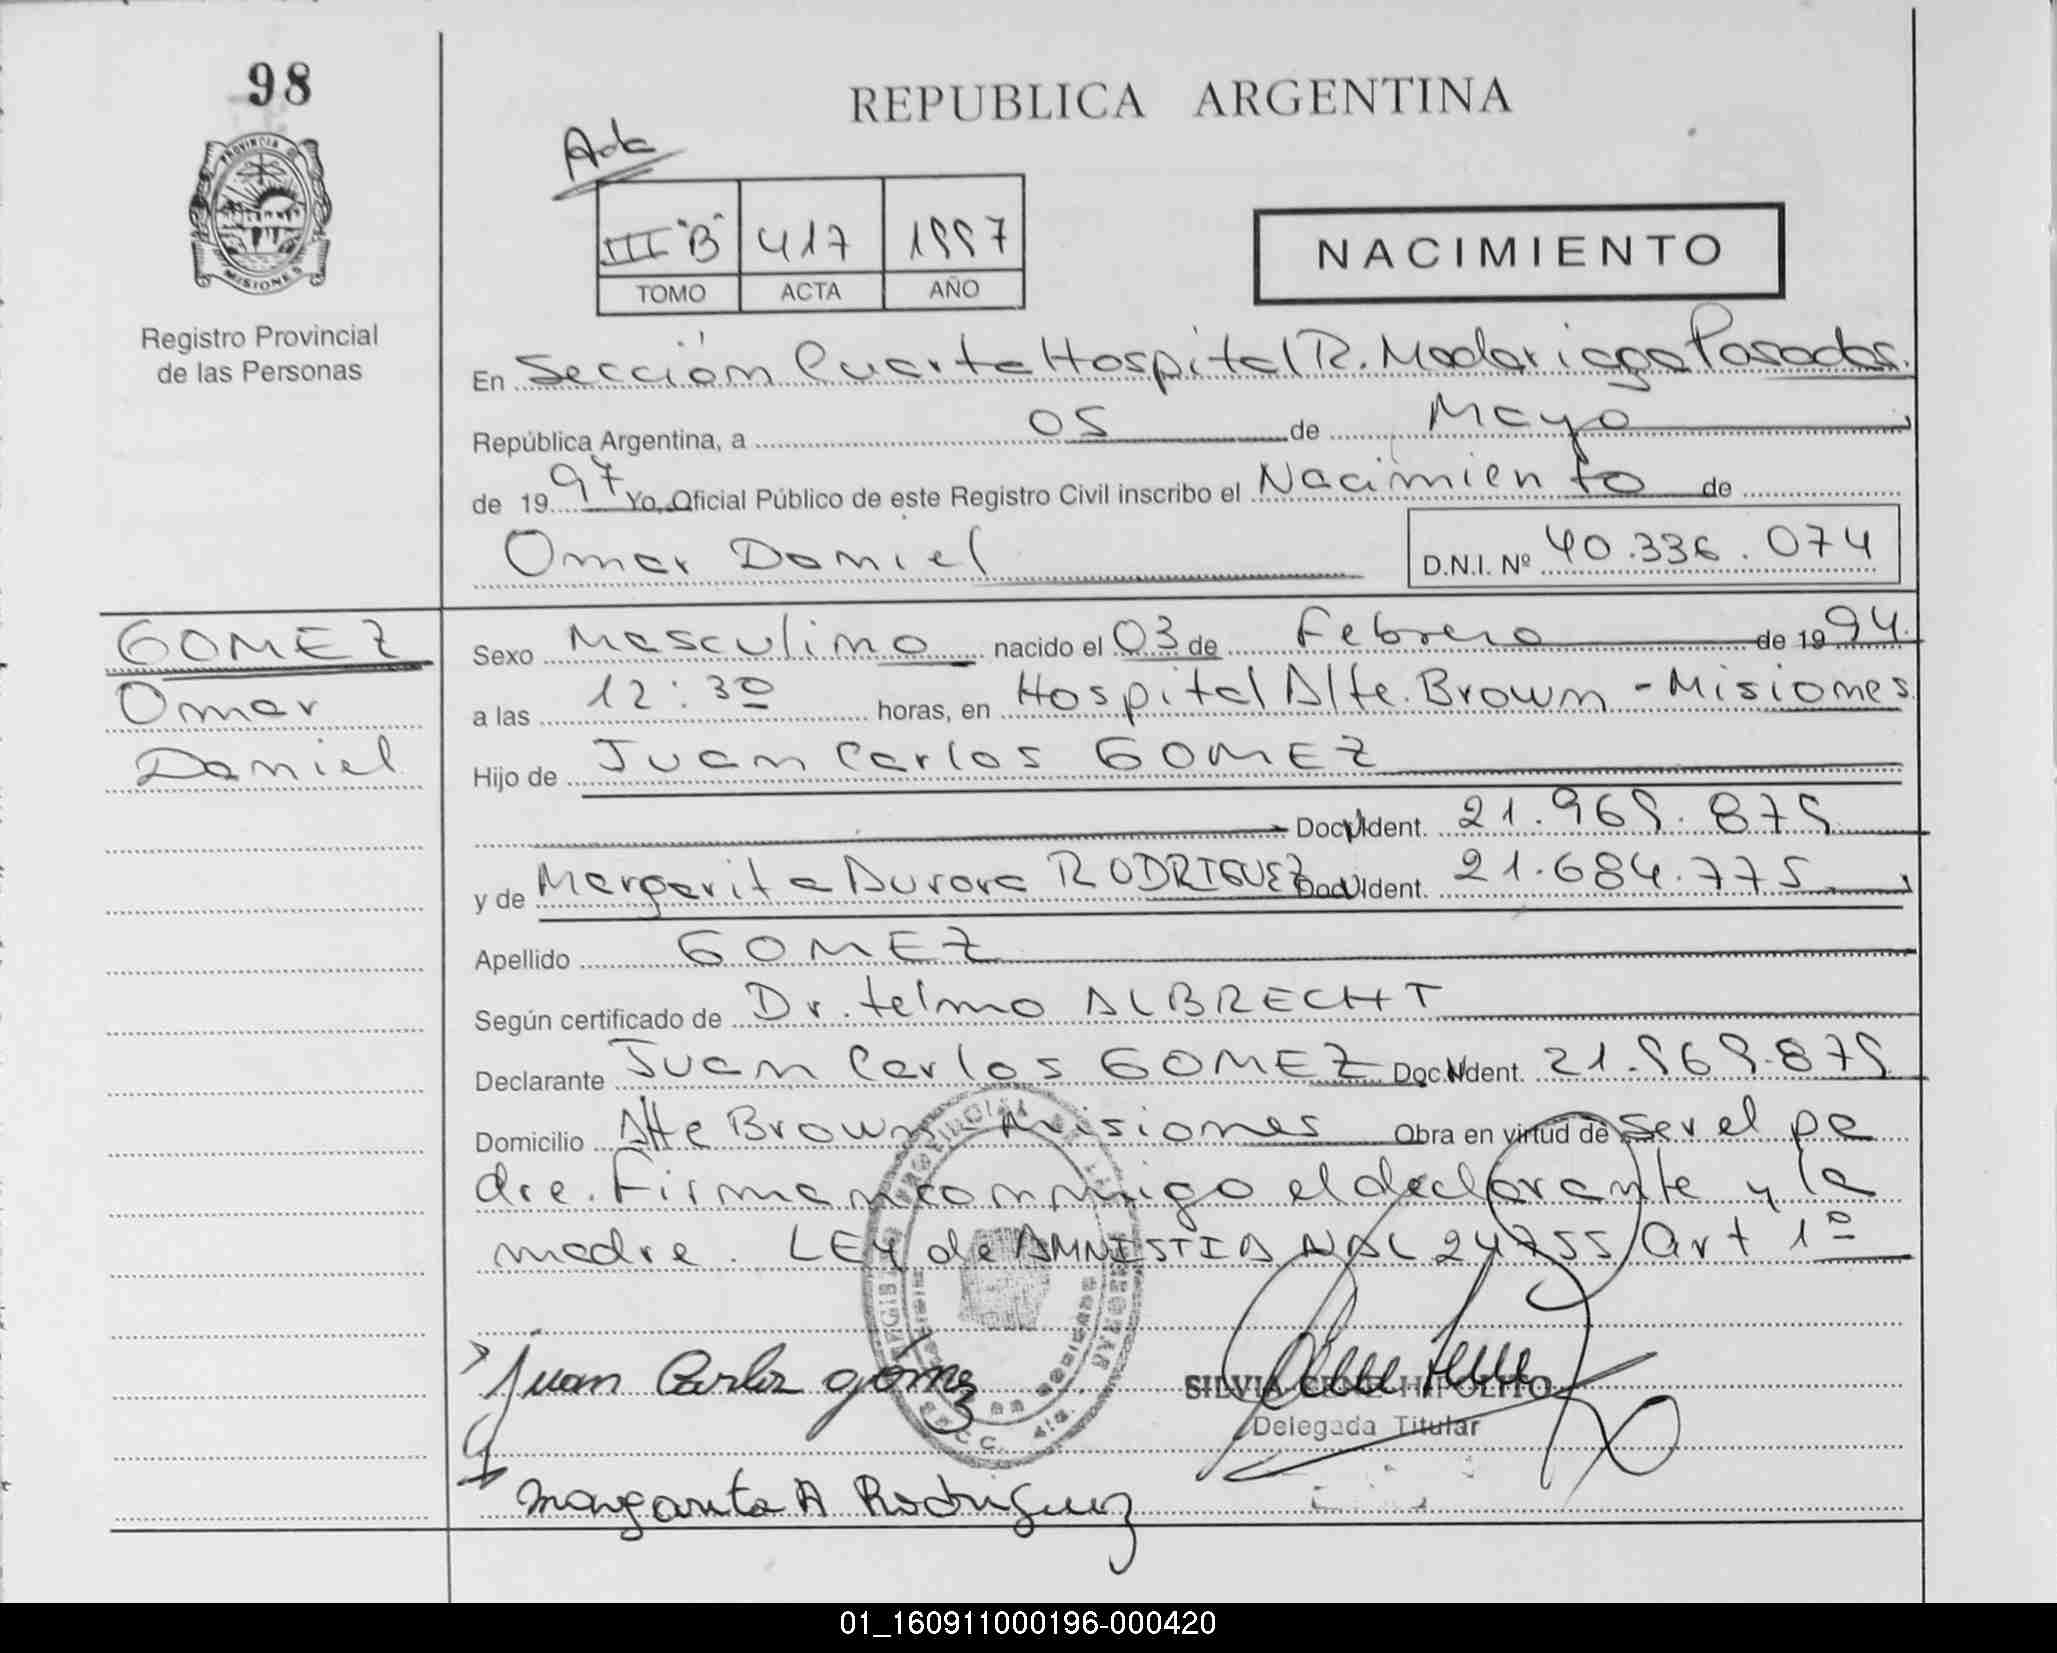 98
REPUBLICA ARGENTINA
PROVINCIA
MISIONES
Registro Provincial
de las Personas
III "B" 417 1997
TOMO ACTA AÑO
NACIMIENTO
En Sección Cuarta Hospital R. Madariaga Posadas.
República Argentina, a 05 de Mayo
de 1997 Yo, Oficial Público de este Registro Civil inscribo el Nacimiento de
Omar Daniel
D.N.I. Nº 40.336.074
GOMEZ
Omar
Daniel
Sexo Masculino nacido el 03 de Febrero de 1994.
a las 12:30 horas, en Hospital Alte. Brown - Misiones
Hijo de Juan Carlos GOMEZ
Doc. Ident. 21.969.879
y de Margarita Aurora RODRIGUEZ Doc. Ident. 21.684.775
Apellido GOMEZ
Según certificado de Dr. telmo ALBRECHT
Declarante Juan Carlos GOMEZ Doc. Ident. 21.969.879
Domicilio Alte Brown - Misiones Obra en virtud de ser el pa
dre. Firman conmigo el declarante y la
madre. LEY de AMNISTIA NAL 24755 art 1º
Juan Carlos gómez
SILVIA HIPOLITO
Delegada Titular
margarita A Rodriguez
01_160911000196-000420